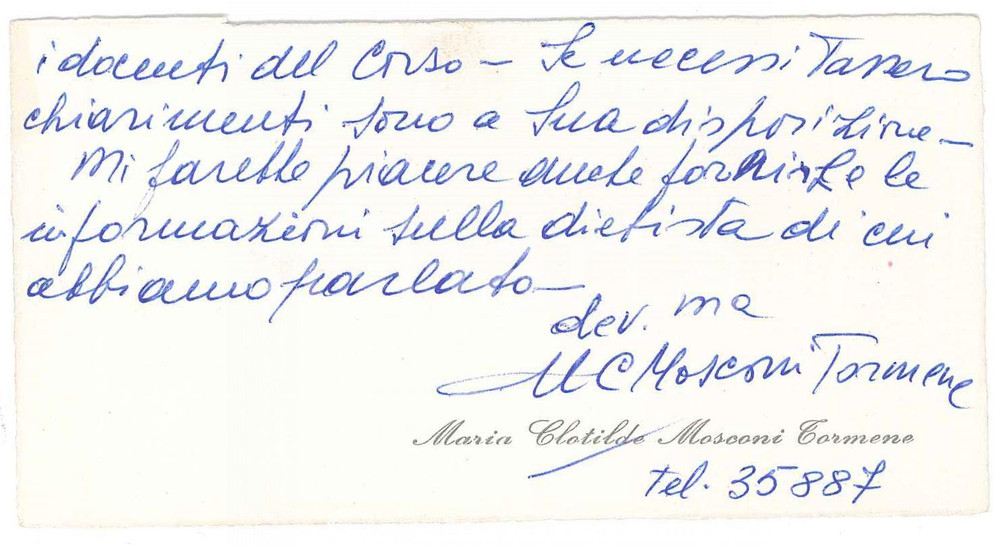 i docenti del Corso – Se necessitassero
chiarimenti sono a Sua disposizione –
Mi farebbe piacere anche fornirLe le
informazioni sulla dietista di cui
abbiamo parlato –
dev. ma
MC Mosconi Tormene
Maria Clotilde Mosconi Tormene
tel. 35887